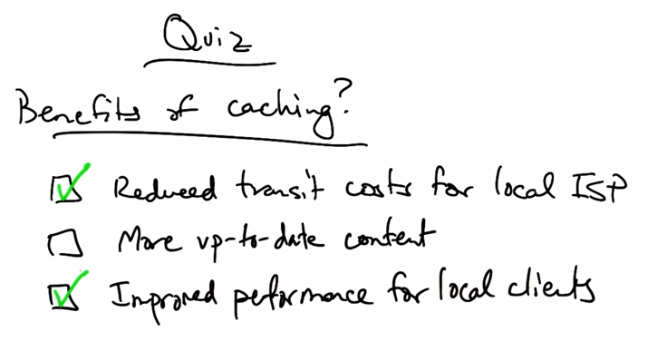 Quiz
Benefits of caching?
Reduced transit costs for local ISP
More up-to-date content
Improved performance for local clients